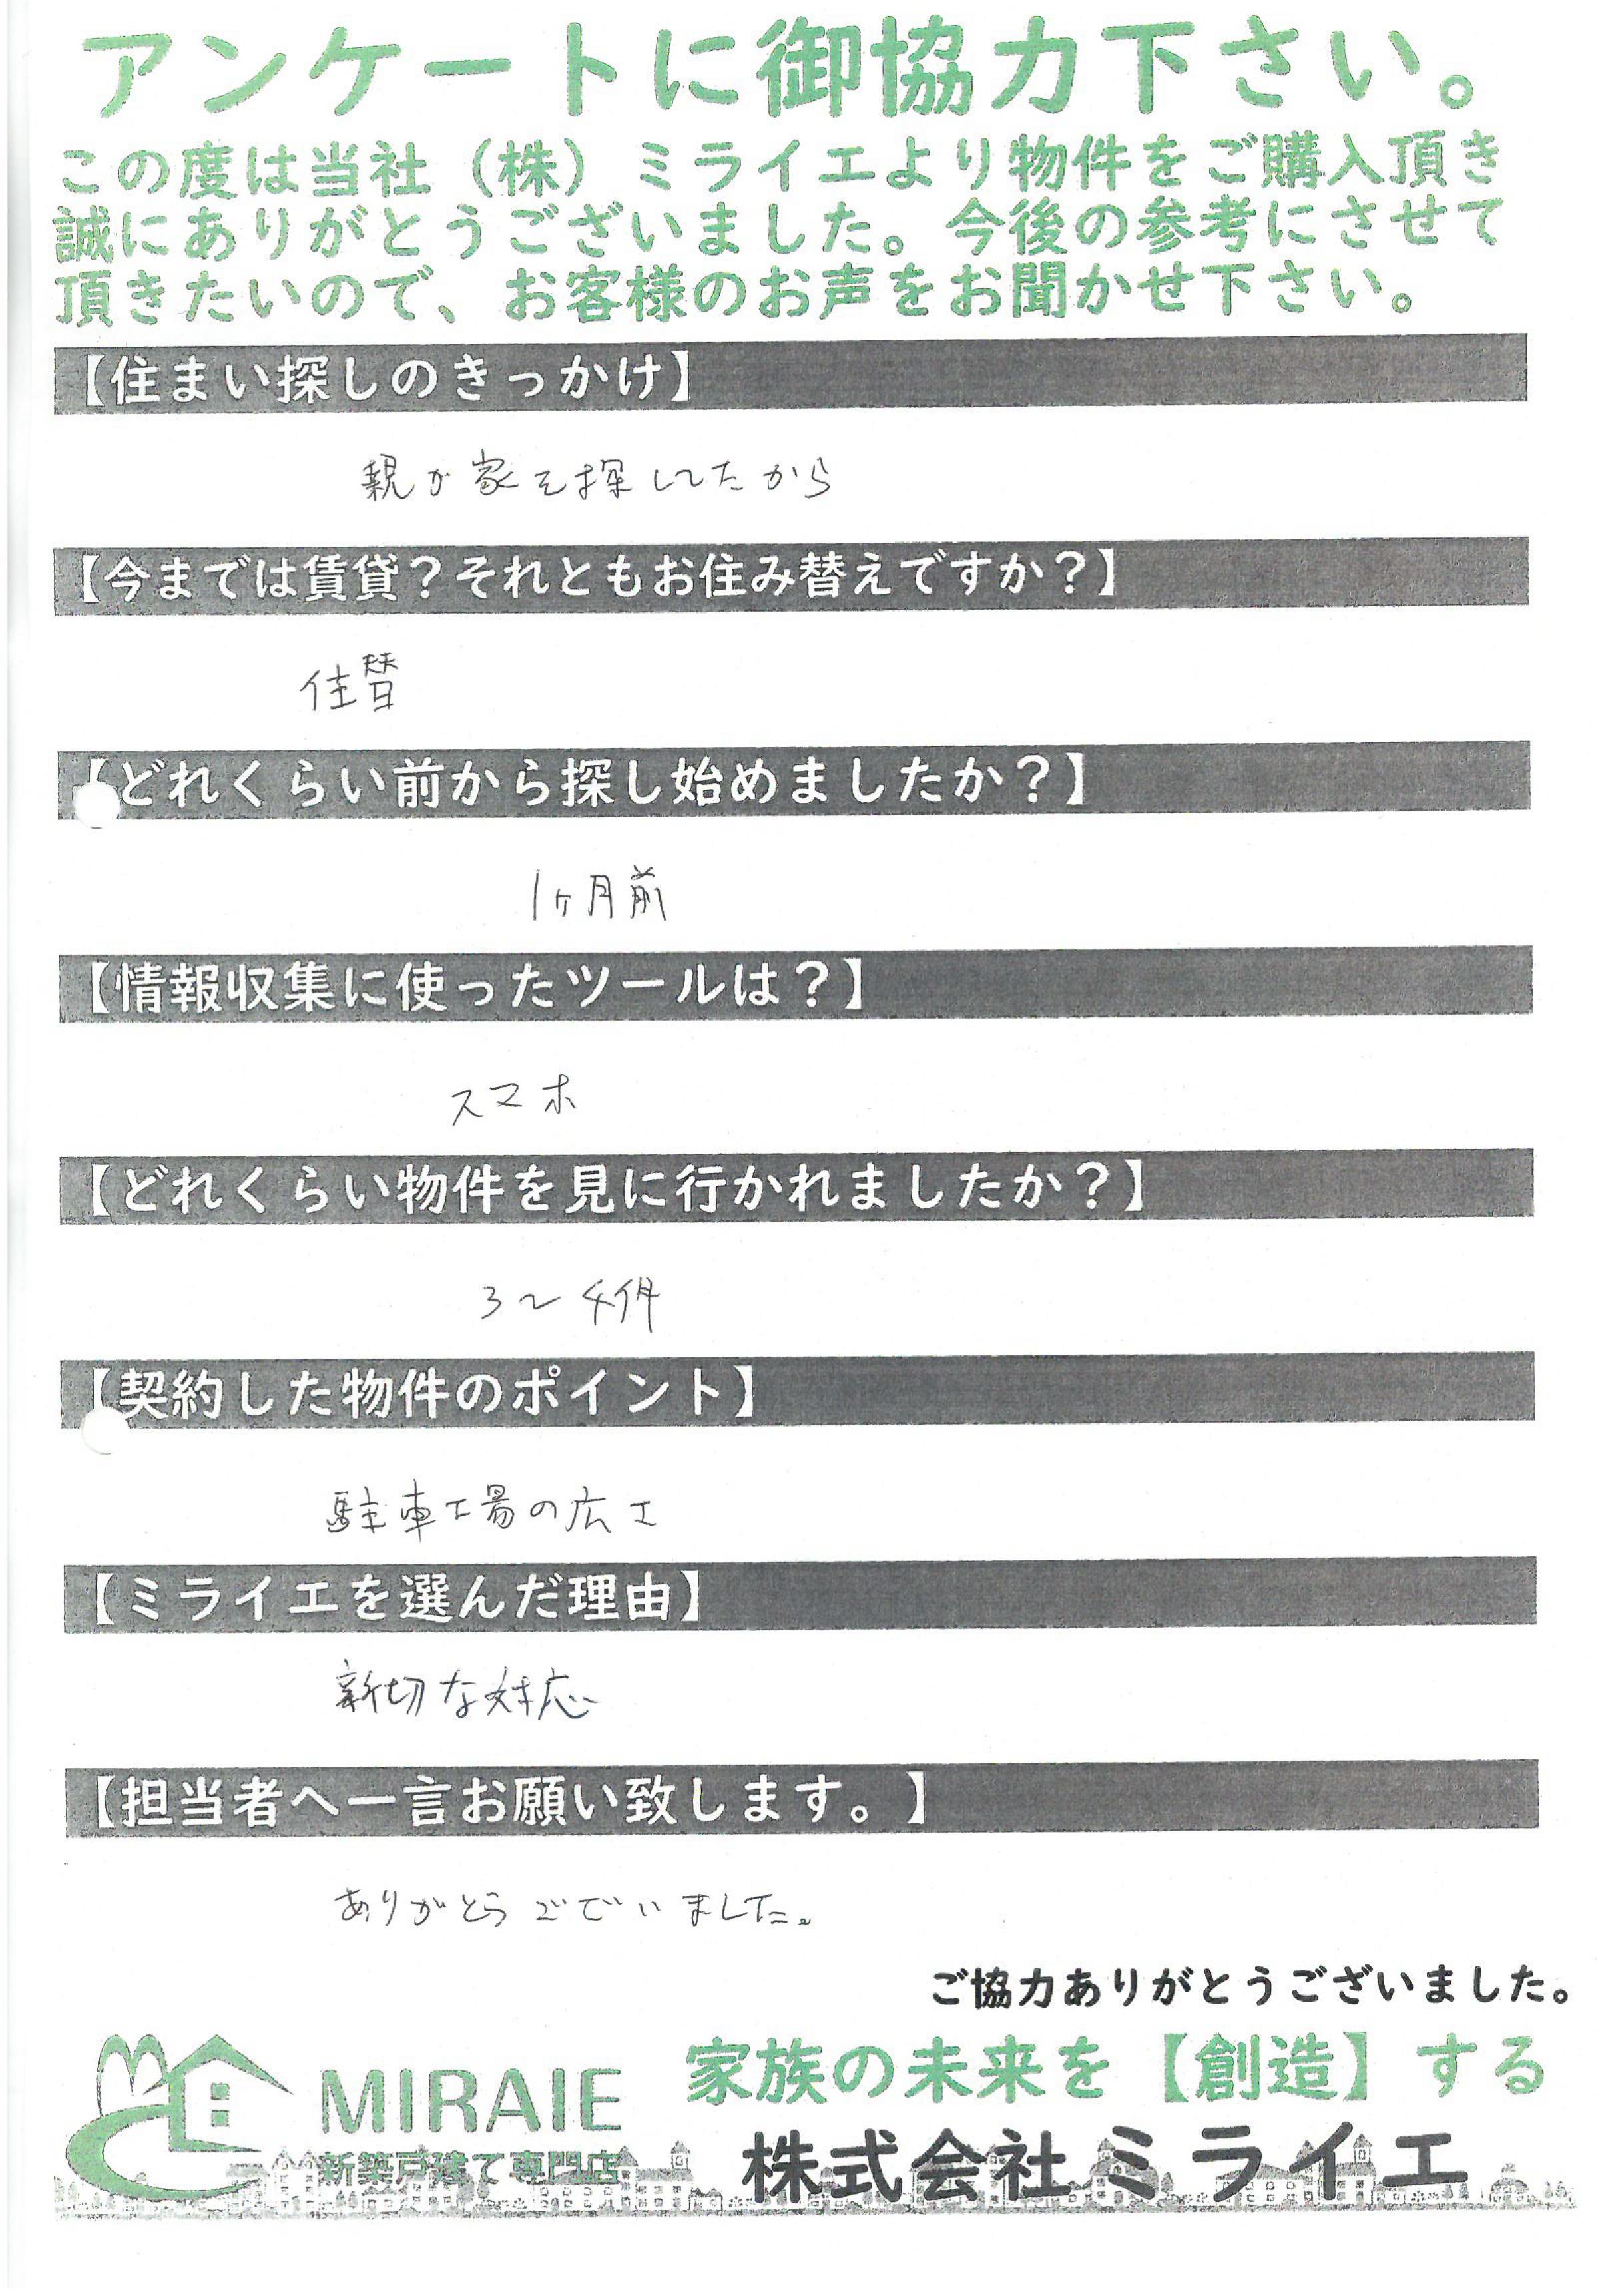 アンケートに御協力下さい。
この度は当社（株）ミライエより物件をご購入頂き
誠にありがとうございました。今後の参考にさせて
頂きたいので、お客様のお声をお聞かせ下さい。
【住まい探しのきっかけ】
親が家を探してたから
【今までは賃貸？それともお住み替えですか？】
住替
【どれくらい前から探し始めましたか？】
1ヶ月前
【情報収集に使ったツールは？】
スマホ
【どれくらい物件を見に行かれましたか？】
3〜4件
【契約した物件のポイント】
駐車場の広さ
【ミライエを選んだ理由】
親切な対応
【担当者へ一言お願い致します。】
ありがとうございました。
ご協力ありがとうございました。
家族の未来を【創造】する
MIRAIE
新築戸建て専門店
株式会社ミライエ